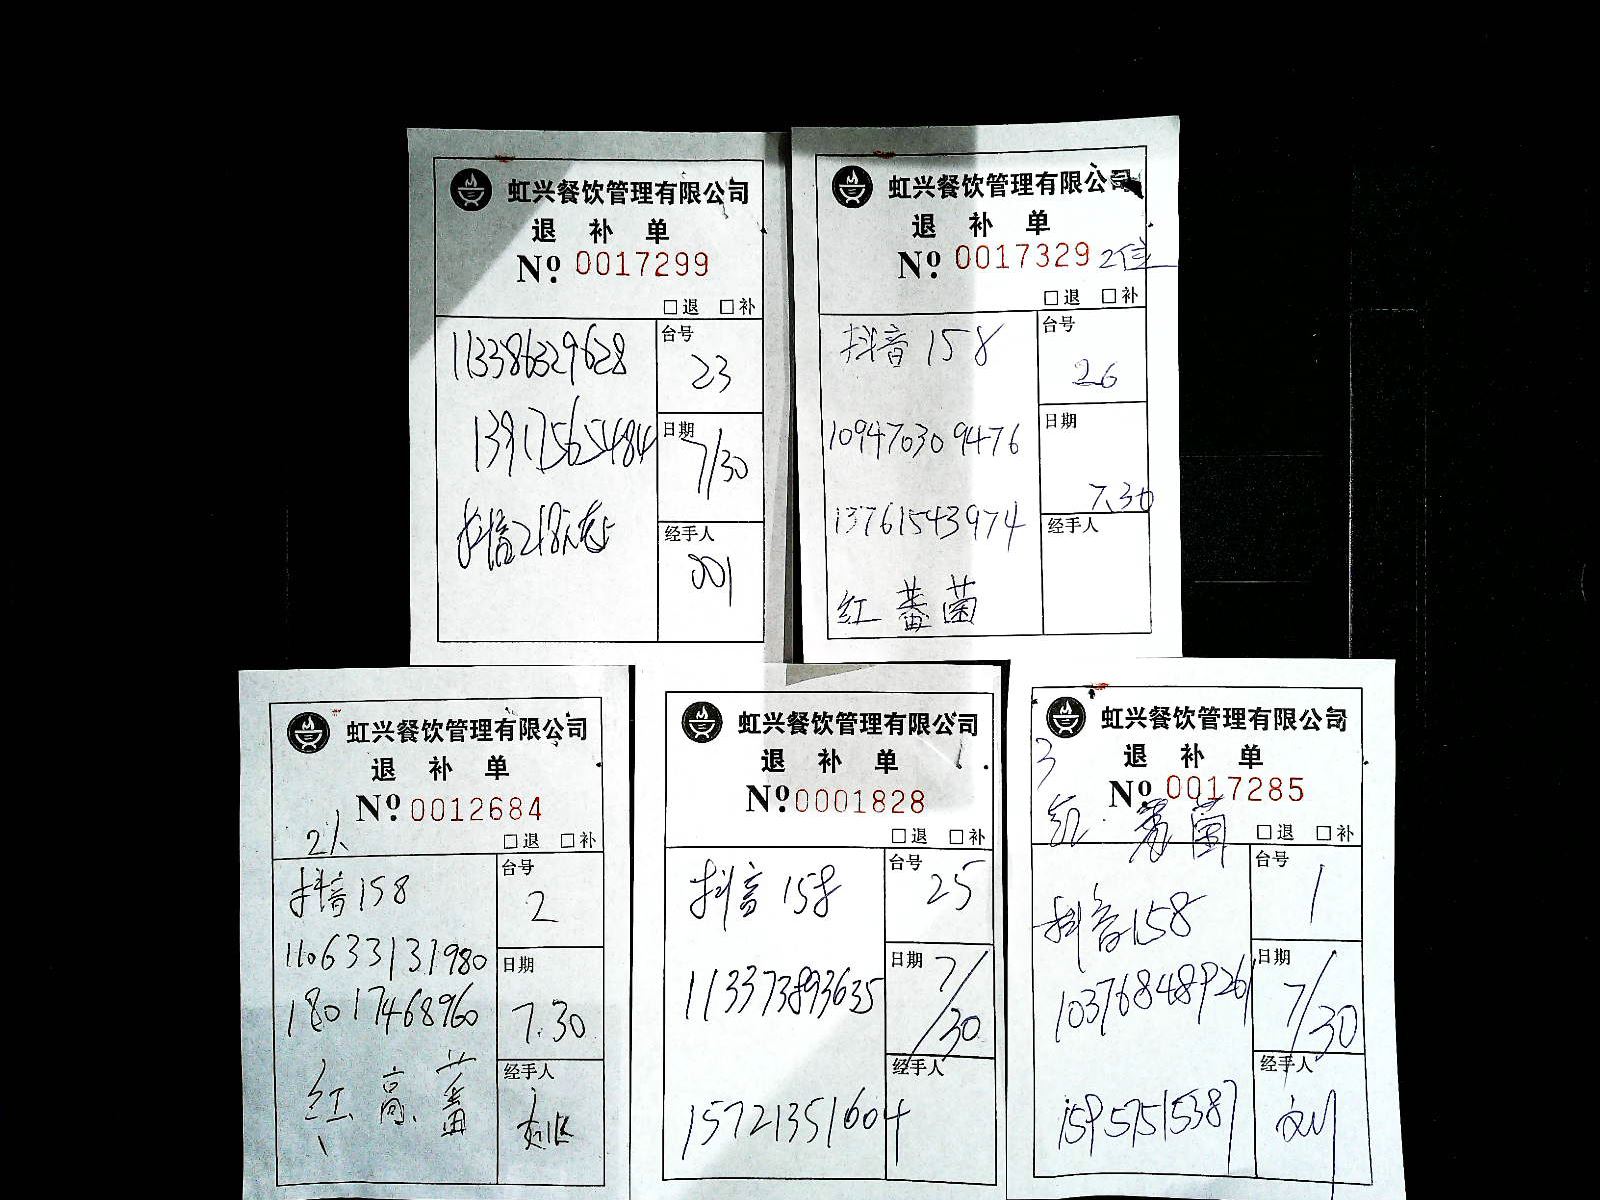 虹兴餐饮管理有限公司
退 补 单
Nº: 0017299
□退 □补
113386329628
13917565484
抖音218
台号
23
日期
7/30
经手人
001
虹兴餐饮管理有限公司
退 补 单
Nº: 0017329 2位
□退 □补
抖音 158
109470309476
13761543974
红 蕃 菌
台号
26
日期
7.30
经手人
虹兴餐饮管理有限公司
退 补 单
Nº: 0012684
2人
□退 □补
抖音158
110633131980
18017468960
红 高 蕃
台号
2
日期
7.30
经手人
虹兴餐饮管理有限公司
退 补 单
Nº: 0001828
□退 □补
抖音 158
113373893635
15721351604
台号
25
日期
7/30
经手人
虹兴餐饮管理有限公司
退 补 单
3
Nº: 0017285
红 菌
□退 □补
抖音158
103768489261
15957515387
台号
1
日期
7/30
经手人
刘